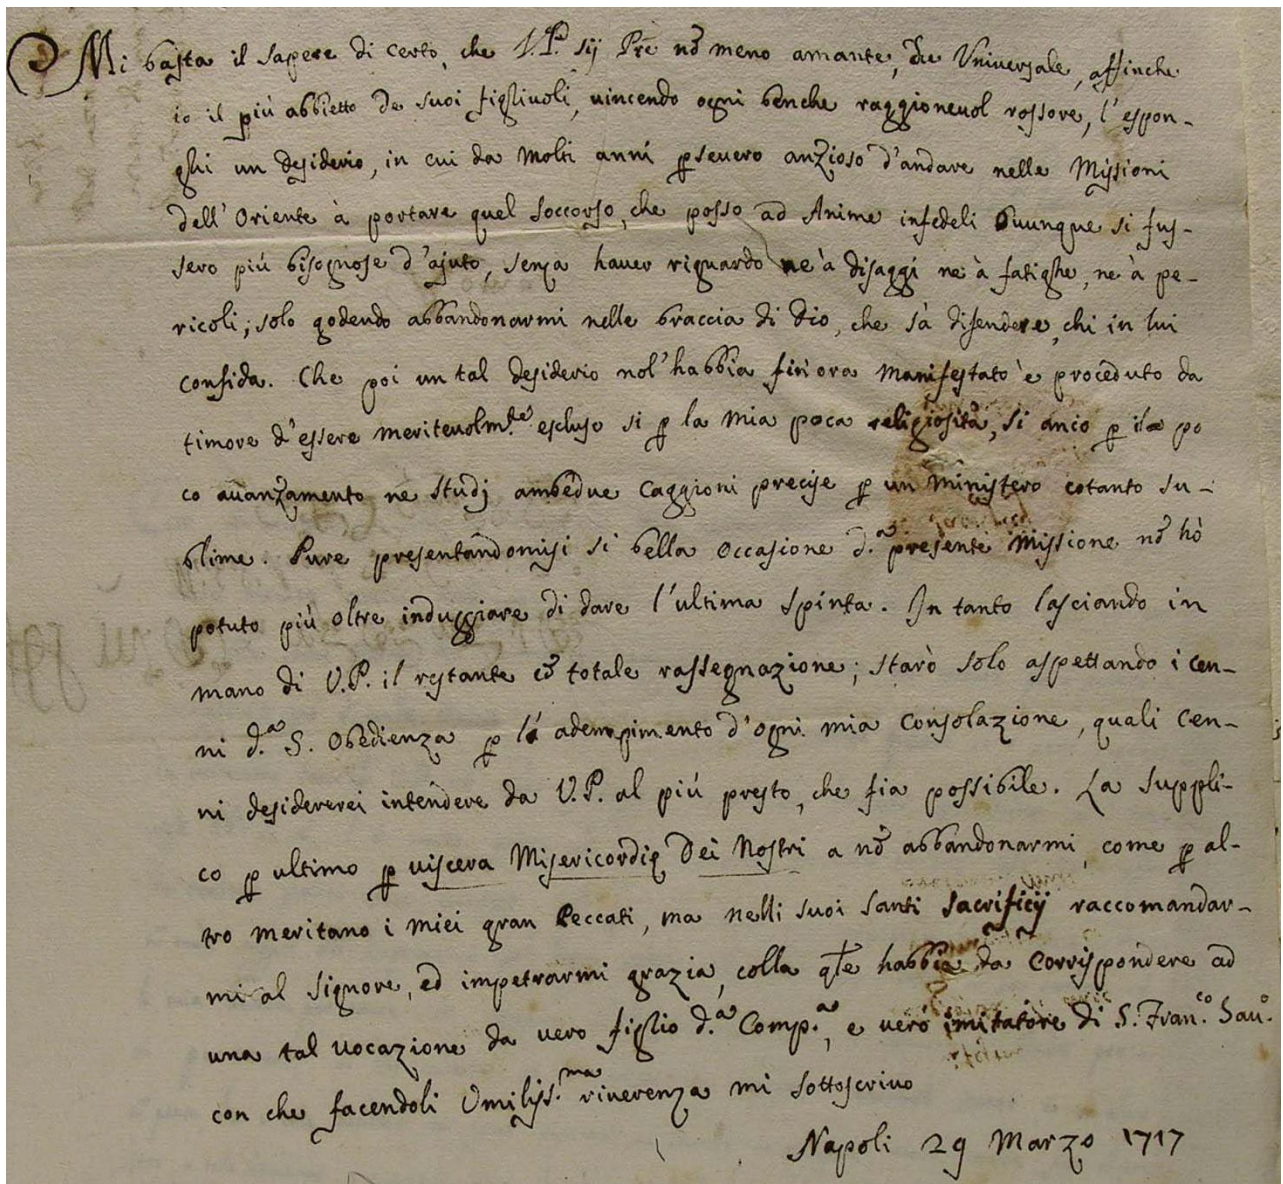 Mi basta il sapere di certo, che V.P. sij Pre nõ meno amante, che Universale, affinche
io il più abbietto de suoi figlivoli, vincendo ogni benche raggionevol rossore, l'espon-
ghi un desiderio, in cui da molti anni persevero anzioso d'andare nelle Missioni
dell'Oriente à portare quel soccorso, che posso ad Anime infedeli ovunque si fus-
sero più bisognose d'ajuto, senza haver riguardo ne à disaggi ne à fatighe, ne à pe-
ricoli; solo godendo abbandonarmi nelle braccia di Dio, che sà difendere, chi in lui
confida. Che poi un tal desiderio nol'habbia fin'ora manifestato è proceduto da
timore d'essere meritevolm.te escluso si p la mia poca religiosità, si anco p il po
co avanzamento ne studj ambedue caggioni precise p un ministero cotanto su-
blime. Pure presentandomisi si bella occasione d.a presente Missione nõ hò
potuto più oltre induggiare di dare l'ultima spinta. In tanto lasciando in
mano di V.P. il restante cõ totale rassegnazione; starò solo aspettando i cen-
ni d.a S. Obedienza p l'adempimento d'ogni mia consolazione, quali cen-
ni desidererei intendere da V.P. al più presto, che fia possibile. La suppli-
co p ultimo p viscera Misericordię Dei Nostri a nõ abbandonarmi, come p al-
tro meritano i miei gran Peccati, ma nelli suoi santi sacrificij raccomandar-
mi al Signore, ed impetrarmi grazia, colla qle habbia da corrispondere ad
una tal vocazione da vero figlio d.a Comp.a, e vero imitatore di S. Fran.co Sav.o
con che facendoli Umiliss.ma riverenza mi sottoscrivo
Napoli 29 Marzo 1717